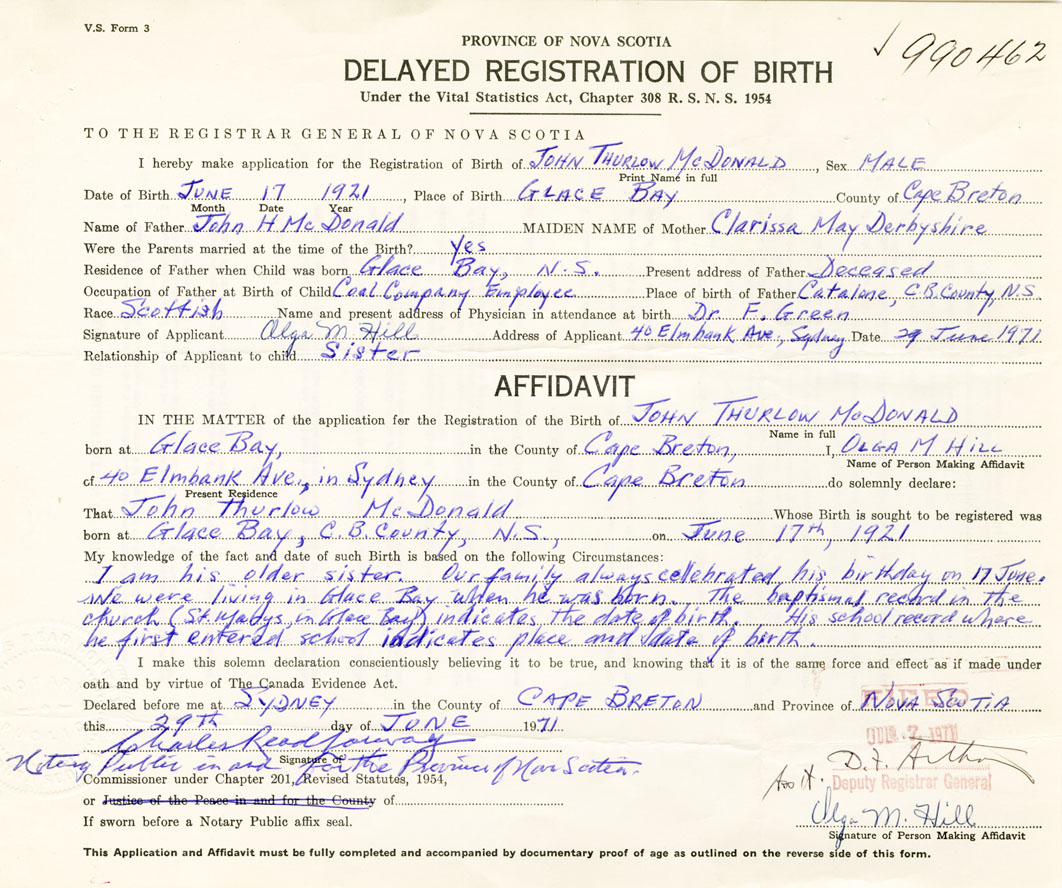 V.S. Form 3
990462
PROVINCE OF NOVA SCOTIA
DELAYED REGISTRATION OF BIRTH
Under the Vital Statistics Act, Chapter 308 R. S. N. S. 1954
TO THE REGISTRAR GENERAL OF NOVA SCOTIA
I hereby make application for the Registration of Birth of JOHN THURLOW MCDONALD, Sex MALE
Print Name in full
Date of Birth JUNE 17 1921, Place of Birth GLACE BAY County of Cape Breton
Month Date Year
Name of Father John H McDonald MAIDEN NAME of Mother Clarissa May Derbyshire
Were the Parents married at the time of the Birth? Yes
Residence of Father when Child was born Glace Bay, N.S. Present address of Father Deceased
Occupation of Father at Birth of Child Coal Company Employee Place of birth of Father Catalone, C.B. County, N.S.
Race Scottish Name and present address of Physician in attendance at birth Dr. F. Green
Signature of Applicant Olga M. Hill Address of Applicant 40 Elmbank Ave., Sydney Date 29 June 1971
Relationship of Applicant to child Sister
AFFIDAVIT
IN THE MATTER of the application for the Registration of the Birth of JOHN THURLOW MCDONALD
Name in full
born at Glace Bay, in the County of Cape Breton, I, OLGA M HILL
Name of Person Making Affidavit
of 40 Elmbank Ave., in Sydney in the County of Cape Breton do solemnly declare:
Present Residence
That John Thurlow McDonald Whose Birth is sought to be registered was
born at Glace Bay, C.B. County, N.S., on June 17th, 1921
My knowledge of the fact and date of such Birth is based on the following Circumstances:
I am his older sister. Our family always celebrated his birthday on 17 June.
We were living in Glace Bay when he was born. The baptismal record in the
church (St. Marys, in Glace Bay) indicates the date of birth. His school record where
he first entered school indicates place and data of birth.
I make this solemn declaration conscientiously believing it to be true, and knowing that it is of the same force and effect as if made under
oath and by virtue of The Canada Evidence Act.
Declared before me at SYDNEY in the County of CAPE BRETON and Province of NOVA SCOTIA
FILED
this 29th day of JUNE 1971
Charles Read
Signature of
Notary Public in and for the Province of Nova Scotia.
D. F. Arthur
Commissioner under Chapter 201, Revised Statutes, 1954,
Deputy Registrar General
or Justice of the Peace in and for the County of
Olga M. Hill
If sworn before a Notary Public affix seal.
Signature of Person Making Affidavit
This Application and Affidavit must be fully completed and accompanied by documentary proof of age as outlined on the reverse side of this form.